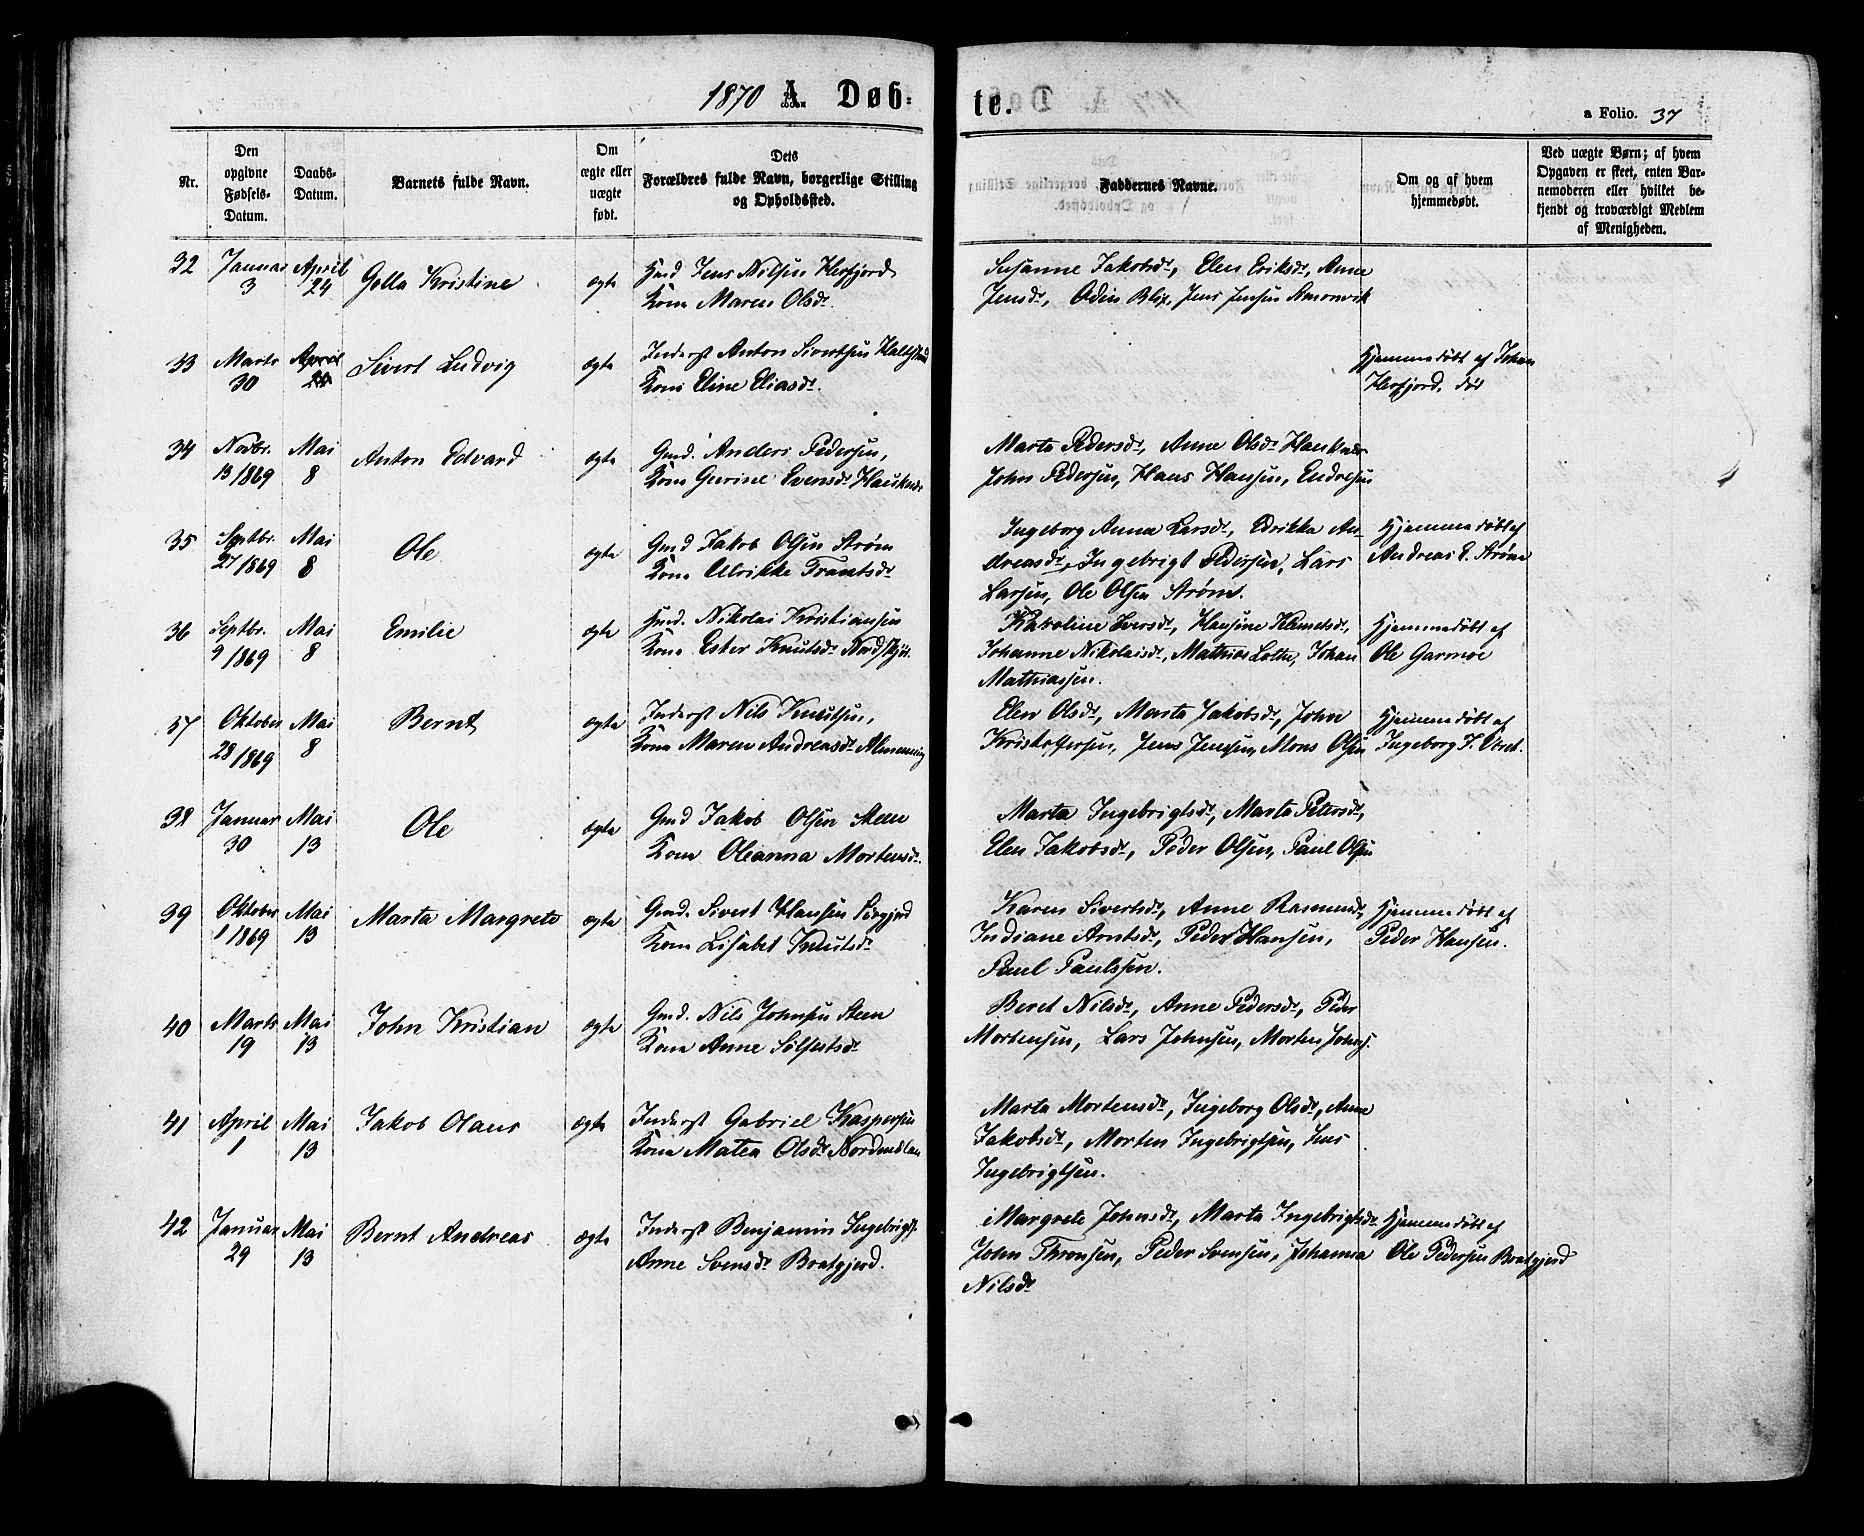 1870 A. Døb-
te.
a Folio. 37
Nr.
Den
opgivne
Fødsels-
Datum.
Daabs-
Datum.
Barnets fulde Navn.
Om
ægte eller
uægte
født.
Dets
Forældres fulde Navn, borgerlige Stilling
og Opholdssted.
Faddernes Navne.
Om og af hvem
hjemmedøbt.
Ved uægte Børn; af hvem
Opgaven er skeet, enten Bar-
nemoderen eller hvilket be-
kjendt og troværdigt Medlem
af Menigheden.
32 Januar 3 April 24 Golla Kristine ægte
Gmd Jens Nilsen Herfjord
Kone Maren Olsdr.
Susanne Jakobsdr, Elen Eriksdr, Anne
Jensdr, Odin Blix, Jens Jensen
33 Marts 30 April Sivert Ludvig ægte
Inderst Anton Sivertsen
Kone Eline Eliasdr.
Hjemmedøbt af Johan
Herfjord, død
34 Novbr. 13/1869 Mai 8 Anton Edvard ægte
Gmd. Anders Pedersen,
Kone Gurine Evensdr
Marta Pedersdr, Anne Olsdr
John Pedersen, Hans Hansen, Endresen
35 Septbr. 27/1869 Mai 8 Ole ægte
Gmd Jakob Olsen Strøm
Kone Ulrikke Frantsdr
Ingeborg Anna Larsdr, Edrikka An-
dreasdr, Ingebrigt Pedersen, Lars
Larsen, Ole Olsen Strøm.
Hjemmedøbt af
Andreas E. Strøm
36 Septbr. 9/1869 Mai 8 Emilie ægte
Gmd. Nikolai Kristiansen
Kone Ester Knutsdr
Karoline Iversdr, Hansine Klemetsdr,
Johanne Nikolaisdr, Mathias Lothe, Johan
Mathiassen.
Hjemmedøbt af
Ole Garmoe
37 Oktober 28/1869 Mai 8 Bernt ægte
Inderst Nils Knutsen,
Kone Maren Andreasdr Almenning
Elen Olsdr, Marta Jakobsdr, John
Kristoffersen, Jens Jensen, Mons Olsen
Hjemmedøbt af
Ingeborg
38 Januar 30 Mai 13 Ole ægte
Gmd Jakob Olsen Steen
Kone Oleanna Mortensdr.
Marta Ingebrigtsdr, Marta Petersdr,
Elen Jakobsdr, Peder Olsen, Paul Olsen
39 Oktober 1/1869 Mai 13 Marta Margrete ægte
Gmd. Sivert Hansen Sørgjerd
Kone Lisabet Knutsdr
Karen Sivertsdr, Anne Rasmusdr,
Indiane Arntsdr, Peder Hansen,
Paul Paulssen.
Hjemmedøbt af
Peder Hansen.
40 Marts 19 Mai 13 John Kristian ægte
Gmd. Nils Johnsen Steen
Kone Anne Sølfestsdr
Beret Nilsdr, Anne Pedersdr, Peder
Mortensen, Lars Johnsen, Morten Johns.
41 April 1 Mai 13 Jakob Olaus ægte
Inderst Gabriel Kaspersen
Kone Matea Olsdr
Marta Mortensdr, Ingeborg Olsdr, Anne
Jakobsdr, Morten Ingebrigtsen, Jens
Ingebrigtsen.
42 Januar 29 Mai 13 Bernt Andreas ægte
Inderst Benjamin Ingebrigts.
Anne Svensdr Bratgjerd.
Margrete Johnsdr, Marta Ingebrigtsdr
John Thronsen, Peder Svensen, Johanna
Nilsdr
Hjemmedøbt af
Ole Pedersen Bratgjerd